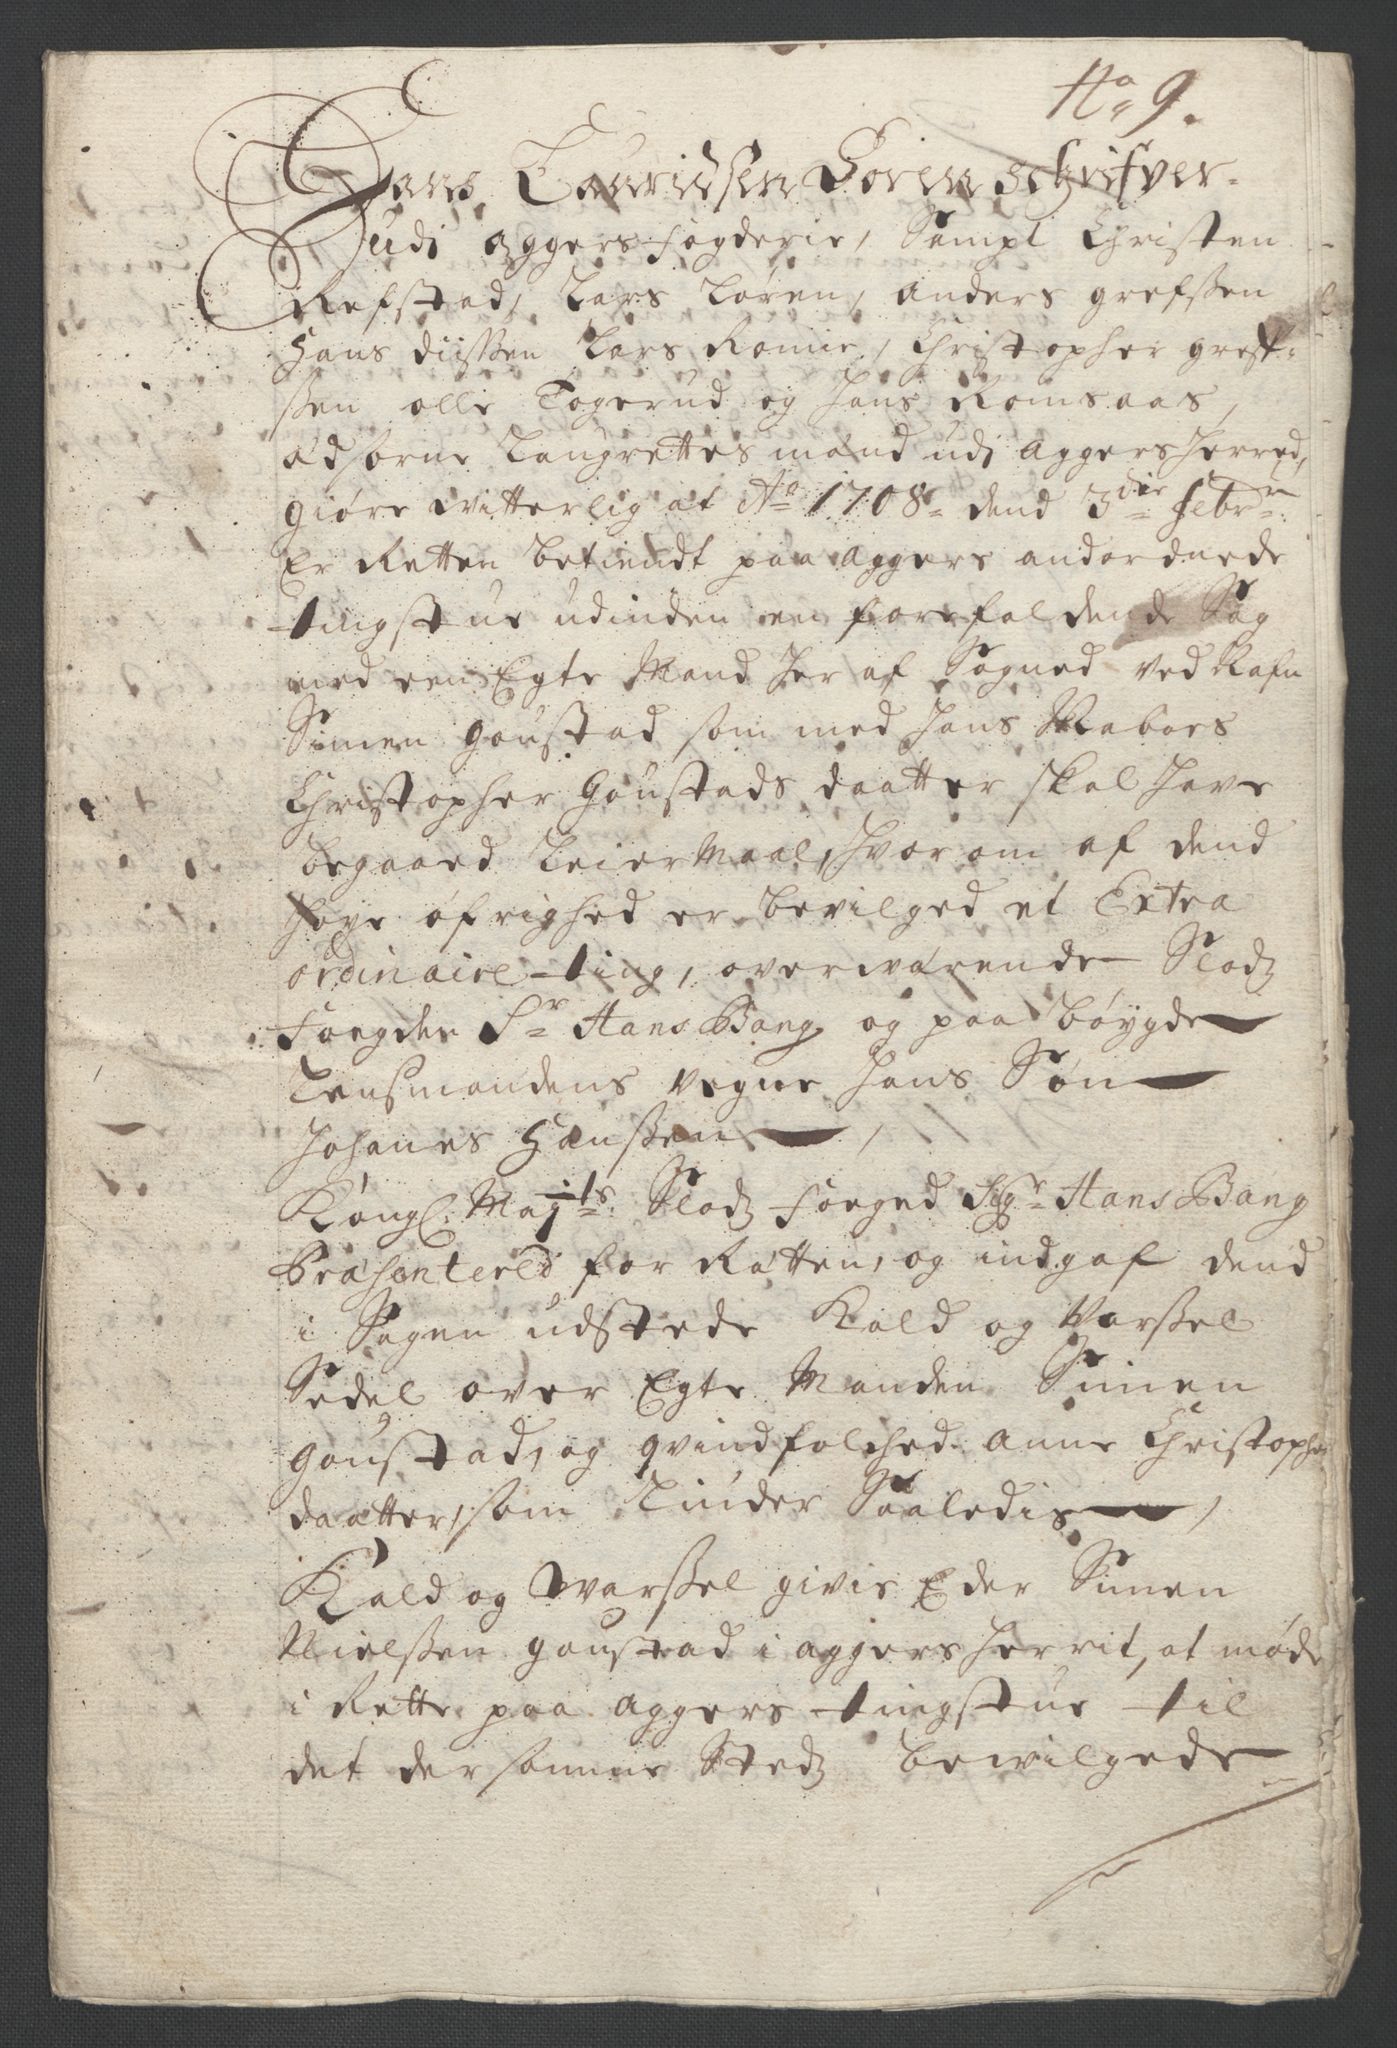 No 9.
Hans Lauridsen Sorenschrifver
Judi Aggers fogderie, Sampt Christen
Refstad, Lars Løren, Anders grefsen
Hans Diisen Lars Romie, Christopher gref-
sen olle Togerud og Hans Romsaas,
Edsorne Laugrettes mænd udi Aggers Herred,
giøre vitterlig at Ao 1708 dend 3die Febr
Er Retten betiendt paa Aggers andordnede
tingstue udinden en forefaldende Sag
med een Egte Mand her af Sogned ved Nafn
Simen goustad som med Hans Nabors
Christopher Goustads daatter skal have
begaaed Leiermaal, hvorom af dend
høye øfrighed er bevilged et Extra
ordinaire ting, overwærende Slodz
Fougden Sr Hans Bang og paa bøygde
Lensmandens vegne Hans Søn
Johanes Hansen,
Kongl. Mayts Slodz Foeged Sigr Hans Bang
Præsentered for Rætten, og indgaf dend
i Sagen udstede Kald og Varsel
Sedel over Egte Manden Simen
goustad, og qvindfolched Anne Christophers
daatter, som Liuder Saaledis,
Kald og Warsel givis Eder Simen
Nielsen goustad i aggers Herrit, at møde
i Rette paa Aggers tingstue til
det dersamme Stedz bewilgede